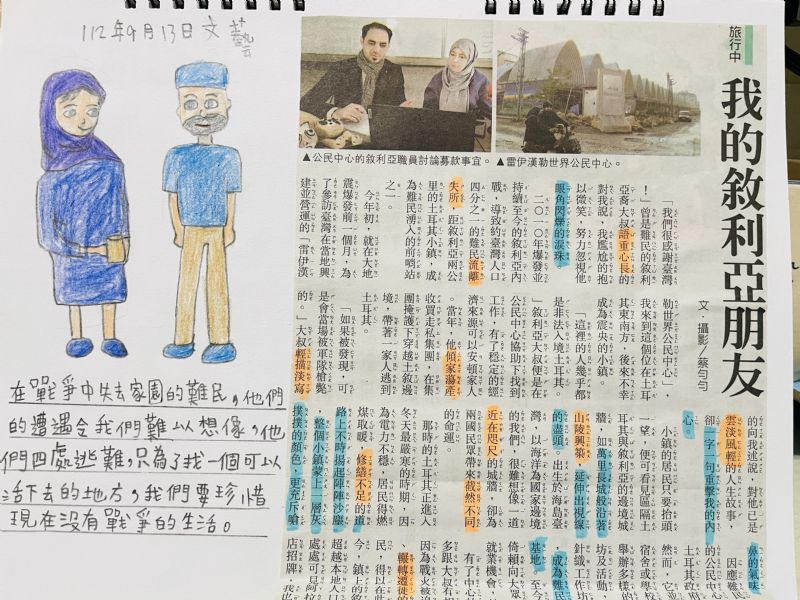 112年9月13日文藝
在戰爭中失去家園的難民，他們
的遭遇令我們難以想像，他
們四處逃難，只為了找一個可以
活下去的地方，我們要珍惜
現在沒有戰爭的生活。
旅行中
我的敘利亞朋友
文．攝影／蔡勻勻
▲公民中心的敘利亞職員討論募款事宜。
▲雷伊漢勒世界公民中心。
「我們很感謝臺灣
！」曾是難民的敘利
亞裔大叔語重心長的
對我說，我尷尬的抱
以微笑，努力忽視他
眼角閃爍的淚珠。
二○一○年爆發並
持續至今的敘利亞內
戰，導致約臺灣人口
四分之一的難民流離
失所，距敘利亞兩公
里的土耳其小鎮，成
為難民湧入的前哨站
之一。
今年初，就在大地
震爆發前一個月，為
了參訪臺灣在當地興
建並營運的「雷伊漢
勒世界公民中心」，
我來到這個位在土耳
其東南方，後來不幸
成為震央的小鎮。
「這裡的人幾乎都
是非法入境土耳其。
」敘利亞大叔便是在
公民中心協助下找到
工作，有了穩定的經
濟來源可以安頓家人
。當年，他傾家蕩產
收買走私集團，在集
團掩護下穿越土敘邊
境，帶著一家人逃到
土耳其。
「如果被發現，可
是會當場被軍隊槍斃
的。」大叔輕描淡寫
的向我述說，對他已是
雲淡風輕的人生故事，
卻一字一句重擊我的內
心。
小鎮的居民只要抬頭
一望，便可看見區隔土
耳其與敘利亞的邊境城
牆，如萬里長城般沿著
山陵興築，延伸出視線
的盡頭。出生在海島臺
灣，以海洋為國家邊境
的我們，很難想像一道
近在咫尺的城牆，卻為
兩國民眾帶來截然不同
的命運。
那時的土耳其正進入
冬天最嚴寒的時期，因
為電力不穩，居民得燃
煤取暖，修繕不足的道
路上不時揚起陣陣沙塵
，整個小鎮蒙上一層灰
撲撲的顏色，更充斥嗆
鼻的氣味
因應難
的公民中
土耳其政
然而，它
宿舍或學
舉辦多樣的
坊及活動
針織工作坊
，成為難民
基地，至今
倚賴向大眾
就業機會，
有了中心
多跟大叔有
因為戰火被
輾轉遷徙的
民，得以在此
今，鎮上的
超越本地人口
處處可見阿拉
店招牌，我